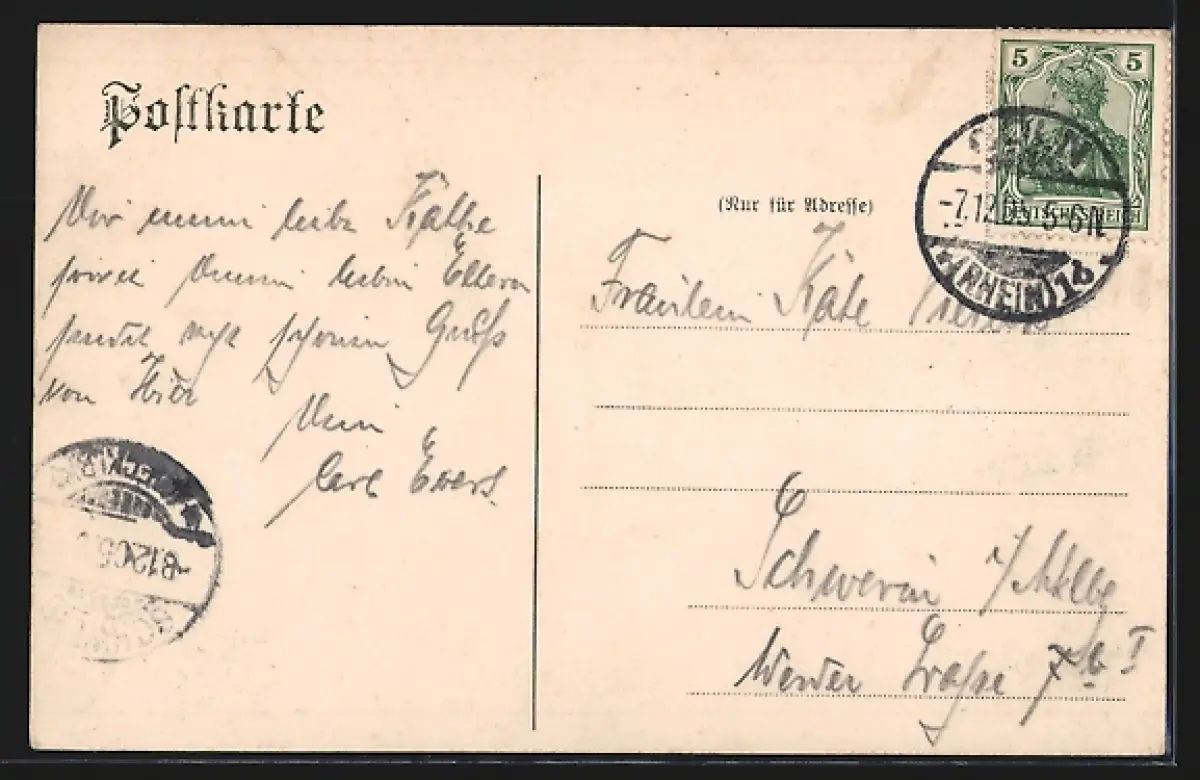 Postkarte
Dir meine liebe Käthe
sowie Deinen lieben Eltern
sendet recht schönen Gruß
von Hier
Dein
Carl Ewers.
(Nur für Adresse)
Fräulein Käte
Schwerin i/Meklbg
Werder Straße 7 b I
5 5
DEUTSCHES REICH
CÖLN
-7.12.05 5-6N
(RHEIN) 1b
-8.12.05